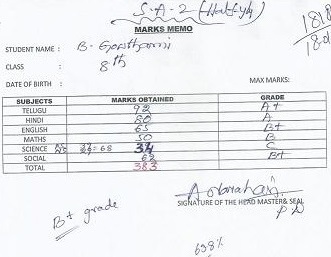 S.A-2 (Half yly)
MARKS MEMO
STUDENT NAME : B. Gowthami
CLASS : 8th
DATE OF BIRTH :
MAX MARKS:
SUBJECTS MARKS OBTAINED GRADE
TELUGU 92 A+
HINDI 80 A
ENGLISH 65 B+
MATHS 50 B
SCIENCE = 68 34 C
SOCIAL 62 B+
TOTAL 383
SIGNATURE OF THE HEAD MASTER& SEAL
B+ grade